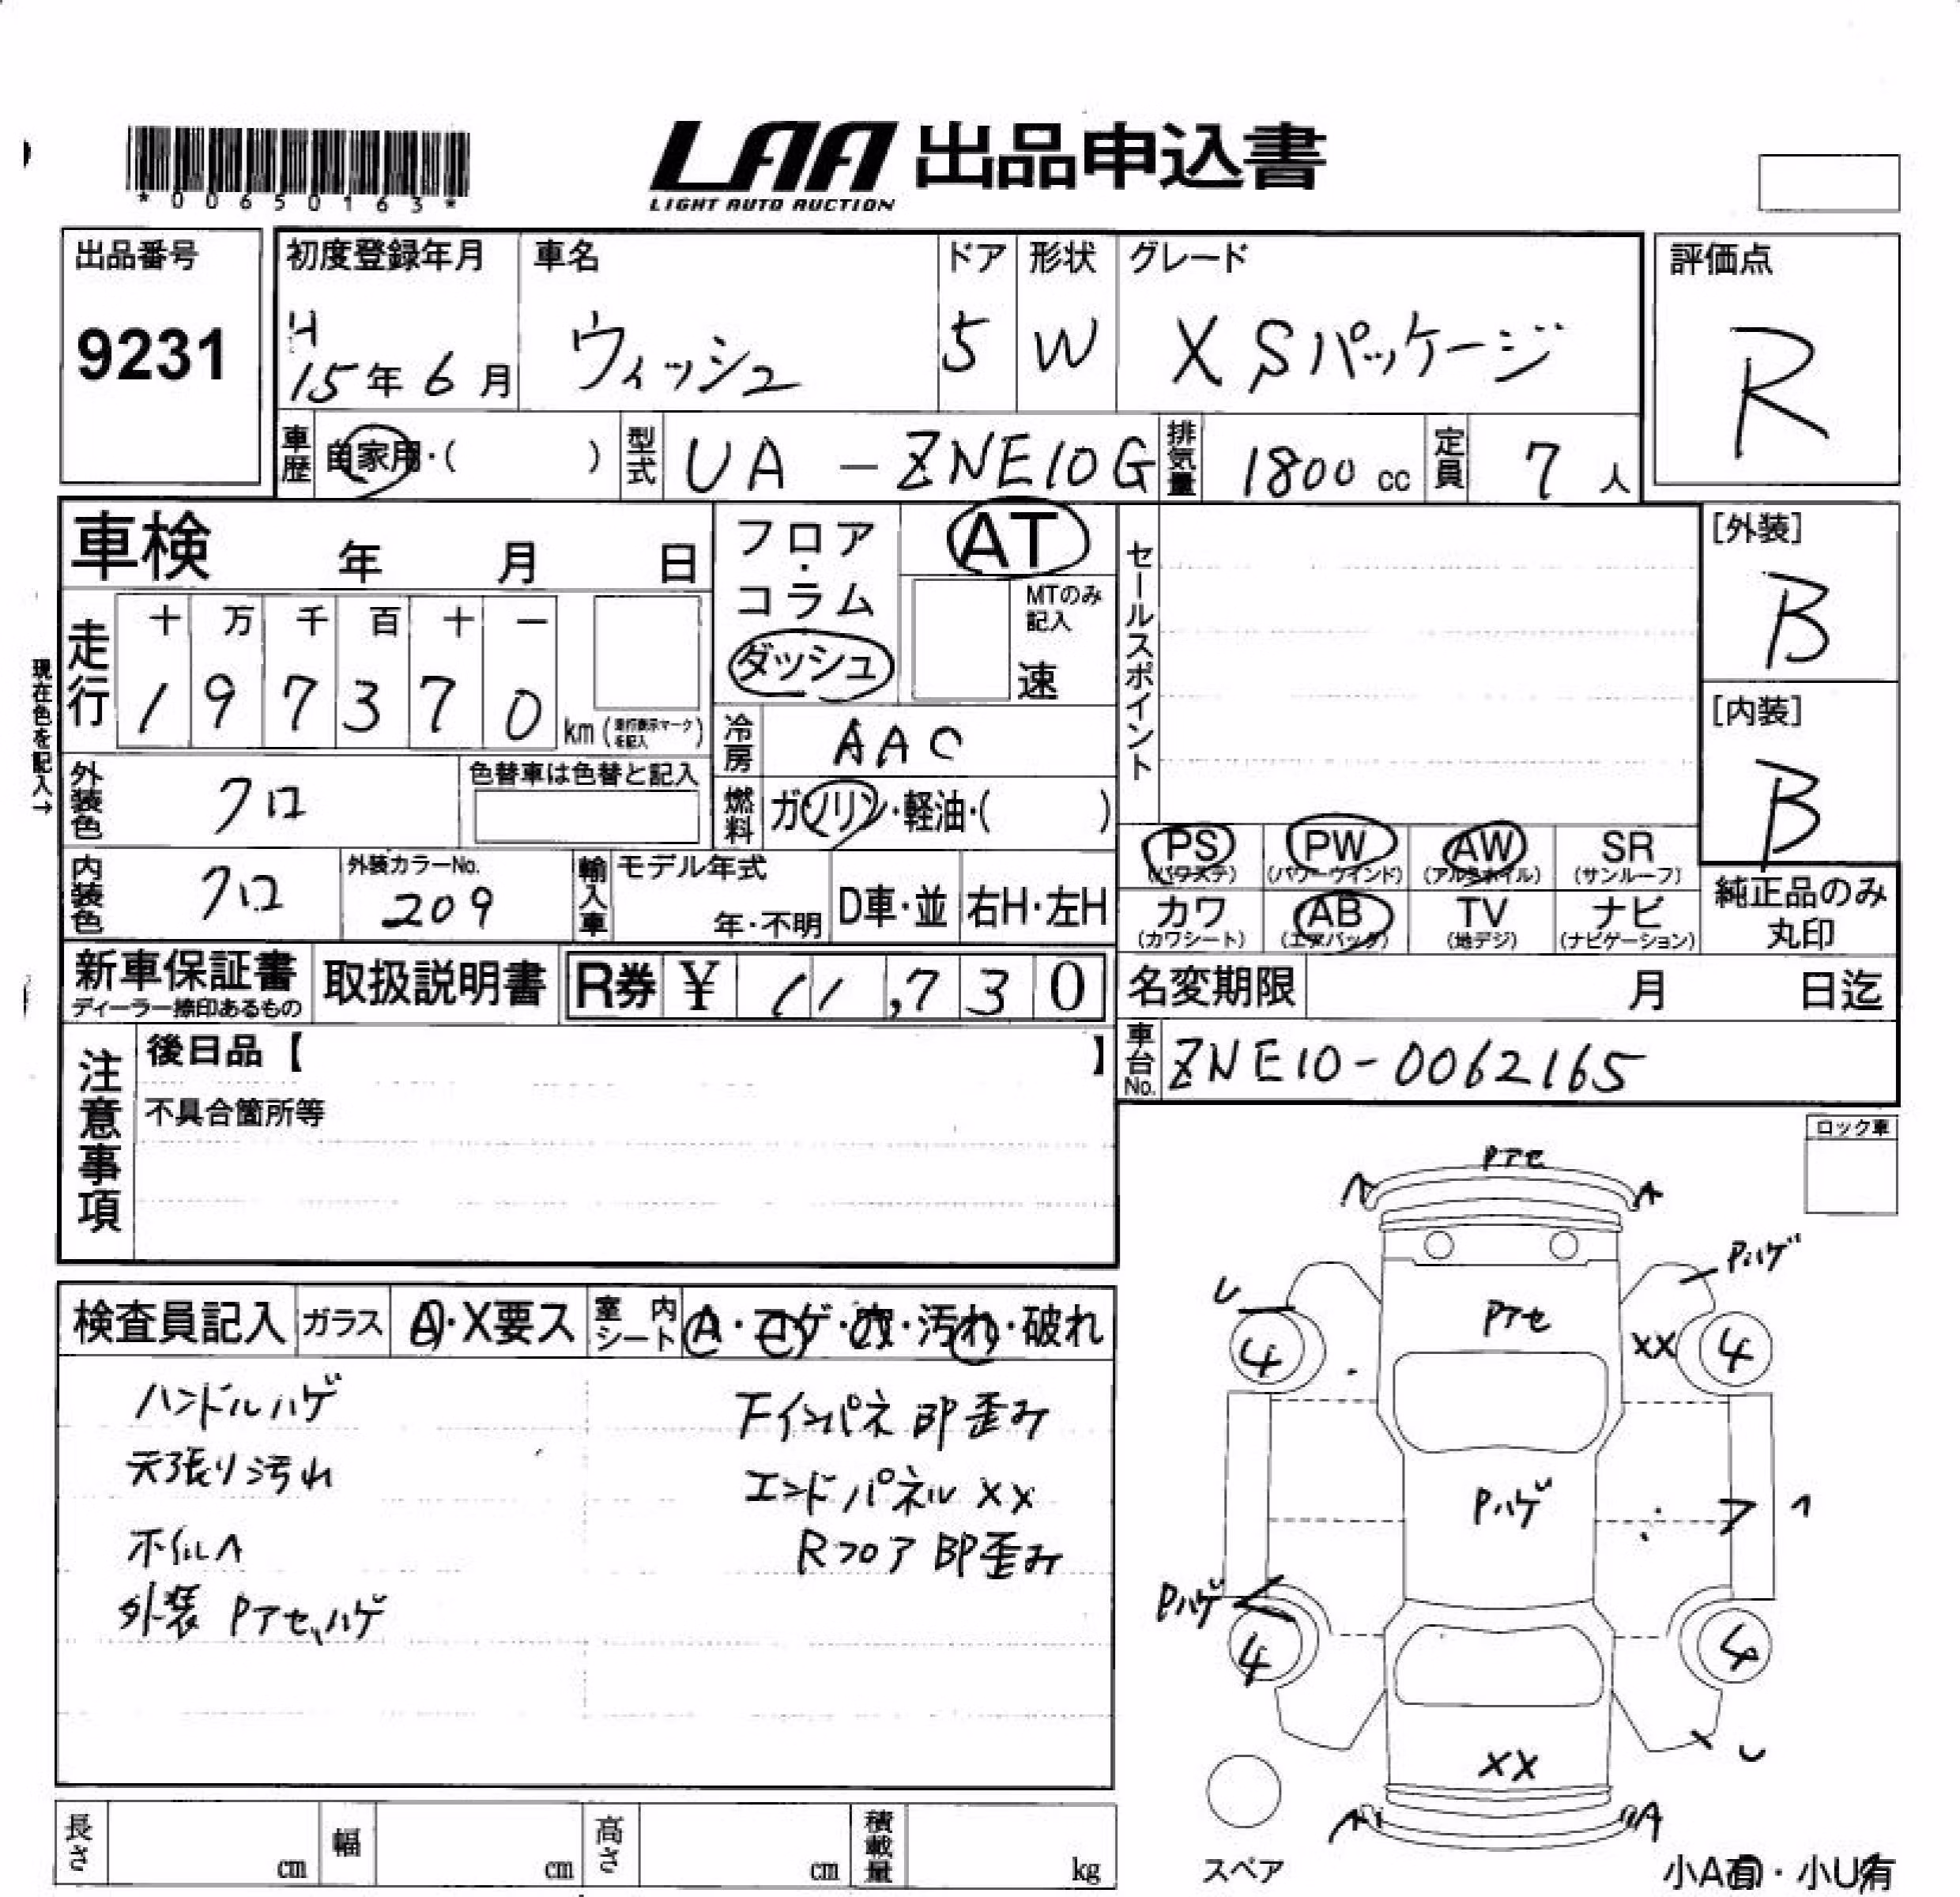 *00650163*
LAA 出品申込書
LIGHT AUTO AUCTION
出品番号
9231
初度登録年月
H
15年6月
車名
ウィッシュ
ドア
5
形状
W
グレード
X Sパッケージ
評価点
R
車歴
自家用・( )
型式
UA - ZNE10G
排気量
1800 cc
定員
7 人
車検 年 月 日
フロア・コラム
ダッシュ
AT
MTのみ記入
速
セールスポイント
[外装]
B
[内装]
B
現在色を記入→
走行
十 万 千 百 十 一
1 9 7 3 7 0
km (走行表示マークを記入)
冷房
AAC
燃料
ガソリン・軽油・( )
外装色
クロ
色替車は色替と記入
内装色
クロ
外装カラーNo.
209
輸入車
モデル年式
年・不明
D車・並
右H・左H
PS
(パワステ)
PW
(パワーウインド)
AW
(アルミホイル)
SR
(サンルーフ)
カワ
(カワシート)
AB
(エアバッグ)
TV
(地デジ)
ナビ
(ナビゲーション)
純正品のみ
丸印
新車保証書
ディーラー捺印あるもの
取扱説明書
R券 ¥ 11,730
名変期限 月 日迄
車台No.
ZNE10-0062165
注意事項
後日品【 】
不具合箇所等
ロック車
検査員記入
ガラス
A・X要ス
室内シート
A・コゲ・穴・汚れ・破れ
ハンドルハゲ
天張り汚れ
ホイルA
外装 Pアセ、ハゲ
下インパネ 即歪み
エンドパネル XX
Rフロア 即歪み
Pアセ
A
A
Pハゲ
U
Pアセ
XX
4
4
Pハゲ
Pハゲ
4
4
XX
U
A
A
スペア
小A有・小U有
長さ cm
幅 cm
高さ cm
積載量 kg